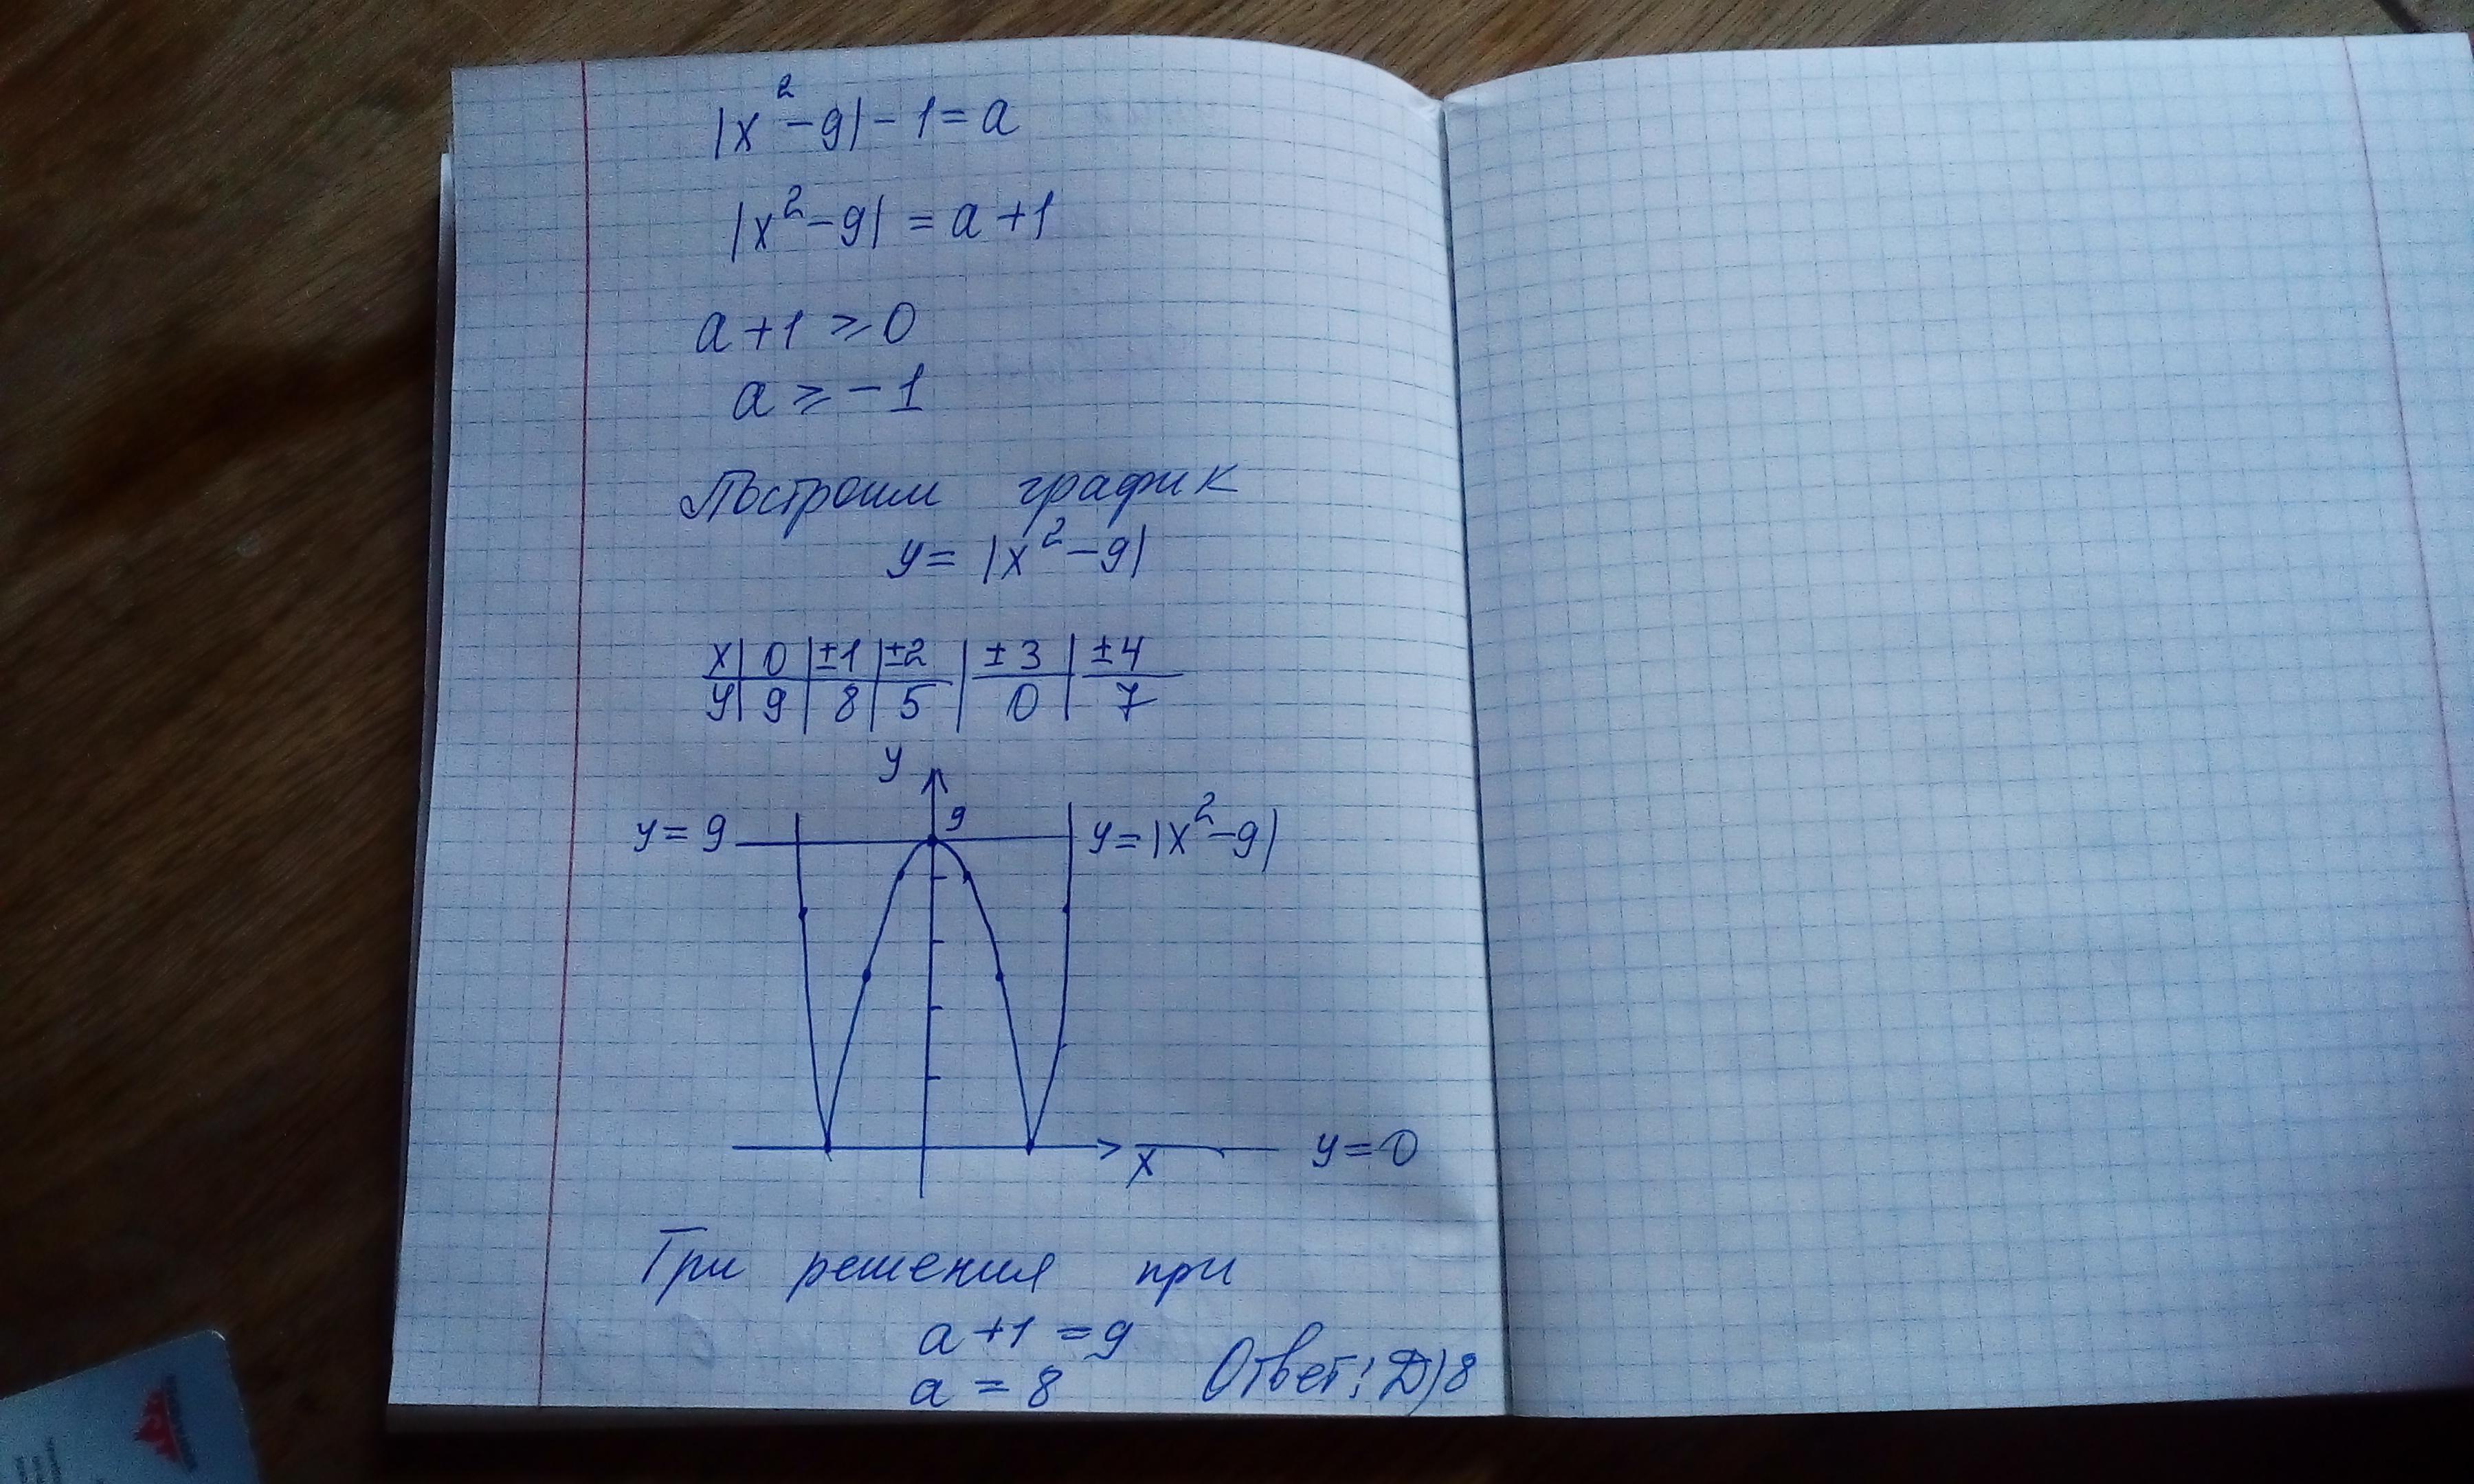 |x²-9|-1=a
|x²-9|=a+1
a+1⩾0
a⩾-1
Построим график
y=|x²-9|
x|0|±1|±2|±3|±4
y|9|8|5|0|7
y
9
y=9
y=|x²-9|
x
y=0
Три решения при
a+1=9
a=8
Ответ: Д)8